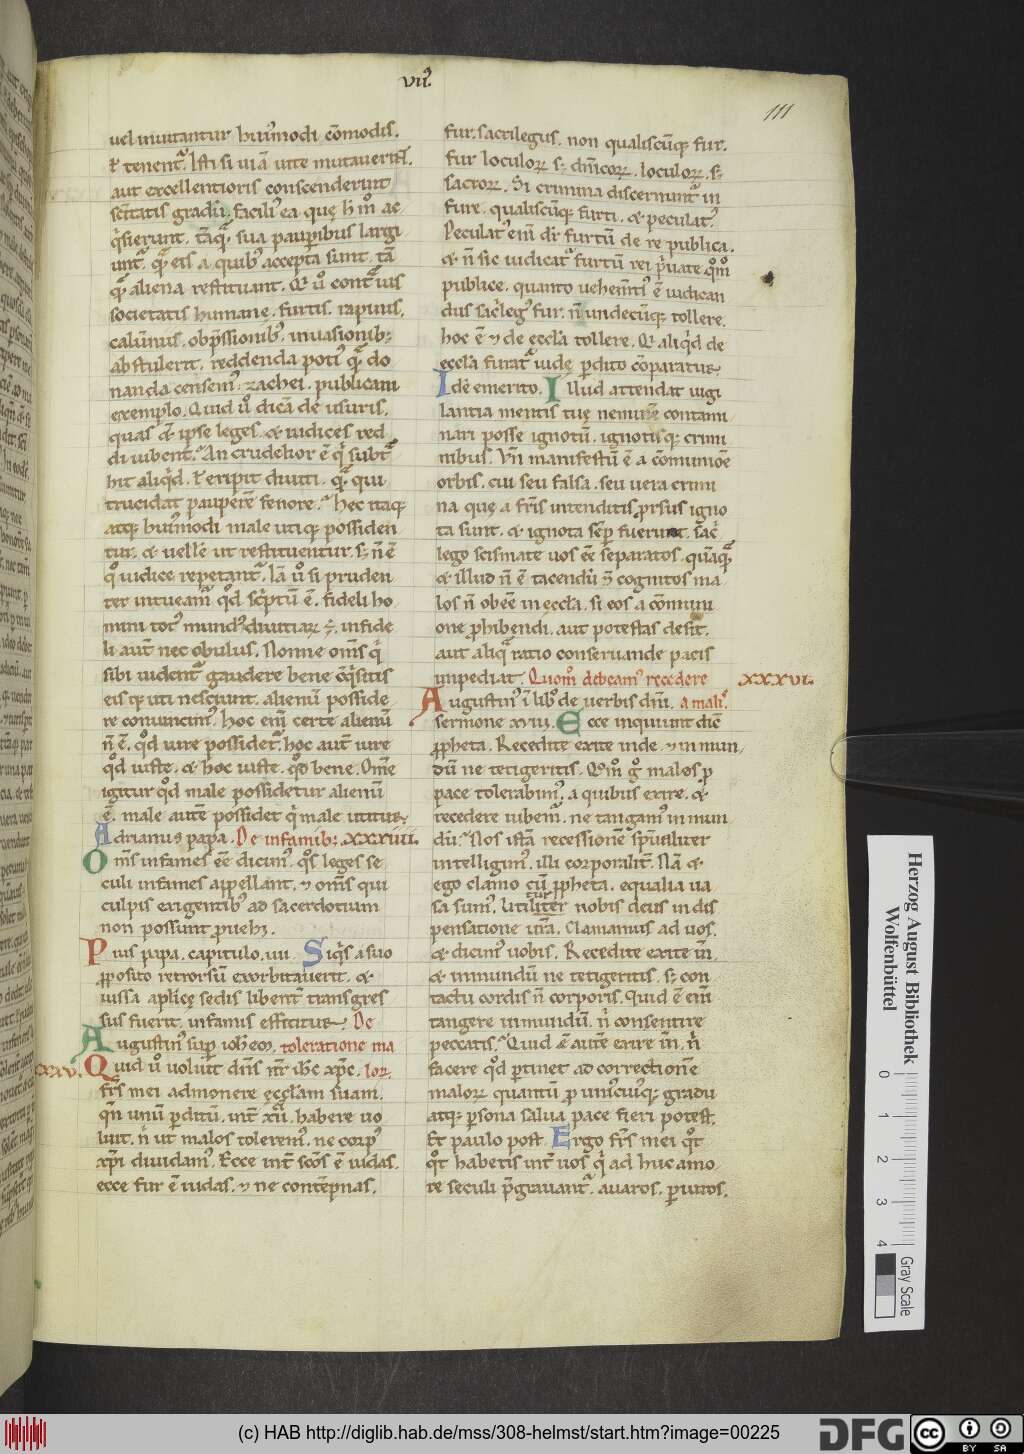 VII.
111
uel inuitantur hui᷒modi cōmodis.
ꝉ tenent᷑. Isti si uiā uite mutauerīt.
aut excellentioris conscenderint
sc̄itatis gradū. facili᷒ ea quę h̄ m̊ ac
q̇sierunt. tāq̄. sua paupib᷒ largi
unt᷑. q̄ eis a quib᷒ accepta sunt. tā
q̄ aliena restituant. Q̇ u̇ cont̄ ius
societatis humanę. furtis. rapinis.
calūniis. obp̄ssionib᷒. inuasionib;
abstulerit. reddenda poti᷒ q̄ do
nanda censem᷒. zachei. publicani
exemplo. Quid u̇ dicā de usuris.
quas &̄ ipse leges. & iudices red
di iubent. An crudelior ē q̇ subt̄
hit aliq̇d. ꝉ eripit diuiti. q̄ qui
trucidat pauperē fenore. hec itaq;
atq; hui᷒modi male utiq; possiden
tur. & uellē ut restituerentur. s; n̄ ē
q̊ iudice repetant᷑. Iā u̇ si pruden
ter intueam̄ q̊d sc̄ptū ē. fideli ho
mini tot᷒ mund᷒ diuitiaꝝ ē. infide
li aut̄ nec obulus. Nonne om̄s q̇
sibi uident᷑ gaudere bene c̄q̇sitis
eis q; uti nesciunt. alienū posside
re conuincim᷒. hoc eni certe alienū
n̄ ē. q̊d iure possidet᷑. hoc aut̄ iure
q̊d iuste. & hoc iuste. q̊d bene. Om̄e
igitur q̊d male possidetur alienū
ē. male autē possidet q̇ male utitur.
Adrianus papa. De infamib;. XXXIIII.
Om̄s infames eē dicim᷒. q̊s leges se
culi infames appellant. & om̄s qui
culpis exigentib᷒ ad sacerdotium
non possunt prouehi.
Pius papa. capitulo. IIII. Siq̇s a suo
ꝓposito retrorsū exorbitauerit. &
iussa aplicę sedis libent̄ transgres
sus fuerit. infamis efficitur. De
Augustin᷒ sup ioh̄em. toleratione ma
XXXV. Quid u̇ uoluit dn̄s nr̄ ih̄c xp̄c. lor.
fr̄s mei admonere ęccl̄am suam.
qn̄ unū pditū. int̄ xii. habere uo
luit. n̄ ut malos tolerem᷒. ne corp᷒
xp̄i diuidam᷒. Ecce int̄ sc̄os ē iudas.
ecce fur ē iudas. & ne contēpnas.
fur. sacrilegus. non qualiscūq; fur.
fur loculoꝝ s; dn̄icoꝝ. loculoꝝ. s;
sacroꝝ. Si crimina discernunt᷑ in
fure. qualiscūq; furti. & peculat᷒.
Peculat᷒ eni dr̄ furtū de re publica.
& n̄ sic iudicat᷑ furtū rei p̄uate q̊m̊
publice. quanto uehem̄ti᷒ ē iudican
dus sac̄leg᷒ fur. n̄ undecūq; tollere.
hoc ē & de eccl̄a tollere. Q̇ aliq̇d de
eccl̄a furat᷑ iudę pdito cōparatur.
Idē emerito. Illud attendat uigi
lantia mentis tuę neminē contami
nari posse ignotū. ignotisq; crimi
nibus. Vn̄ manifestū ē a cōmunioē
orbis. cui seu falsa. seu uera crimi
na que a fr̄is intenditis prsus igno
ta sunt. & ignota sēp fuerunt. sac̄
lego scismate uos eē separatos. quāq̄
& illud n̄ ē tacendū & cognitos ma
los n̄ obeē in eccl̄a. si eos a cōmuni
one phibendi. aut potestas desit.
aut aliq̄ ratio conseruande pacis
impediat. Quom̊ debeam᷒ recedere XXXVI.
Augustin᷒ ī lib᷒ de uerbis dn̄i. a mali᷒.
sermone XVIII. Ecce inquiunt dic̄
ꝓpheta. Recedite exite inde. & inmun
dū ne tetigeritis. Q̊m̊ ḡ malos p
pace tolerabim᷒. a quibus exire. &
recedere iubem᷑. ne tangam᷒ inmun
dū. Nos istā recessionē sp̄ualiter
intelligim᷒. illi corporalit̄. Nā &
ego clamo cū ꝓpheta. equalia ua
sa sum᷒. Utiliter nobis deus in dis
pensatione ur̄a. Clamamus ad uos.
& dicim᷒ uobis. Recedite exite in̄.
& inmundū ne tetigeritis. s; con
tactu cordis n̄ corporis. Quid ē eni
tangere inmundū. n̄ consentire
peccatis. Quid ē autē exire in̄. n̄
facere q̊d ptinet ad correctionē
maloꝝ quantū p uni᷒cui᷒q; gradu
atq; psona salua pace fieri potest.
Et paulo post. Ergo fr̄s mei q̊t
q̊t habetis int̄ uos q̇ ad huc amo
re seculi p̄grauant᷑. auaros. piuros.
Herzog August Bibliothek
Wolfenbüttel
0 1 2 3 4
Gray Scale
(c) HAB http://diglib.hab.de/mss/308-helmst/start.htm?image=00225
DFG
cc
BY SA